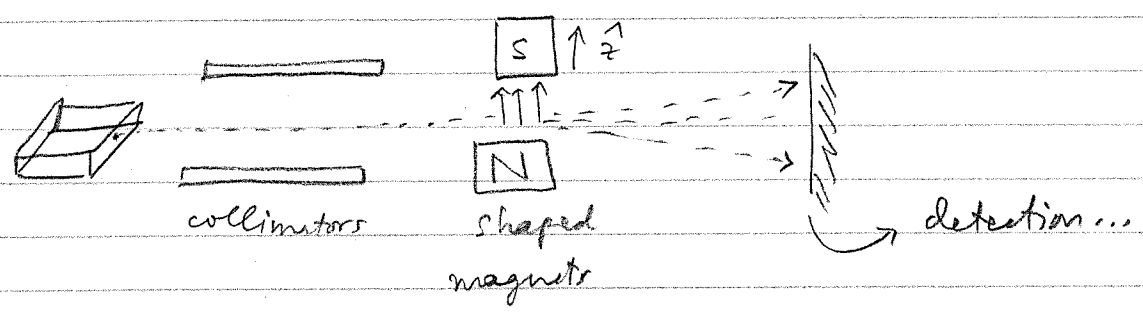 S ↑ ẑ
N
collimators
shaped
magnets
detection...